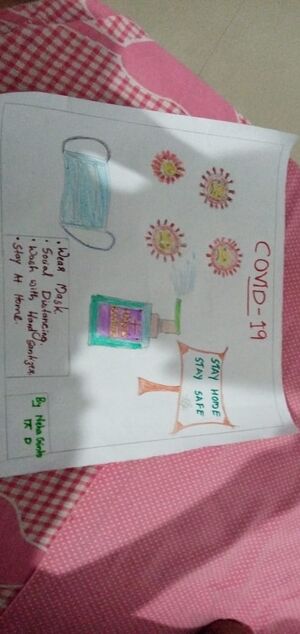 COVID-19
STAY HOME
STAY SAFE
• Wear Mask.
• Social Distancing
• Wash with Hand Sanitizer.
• Stay At Home.
By Neha
IX D